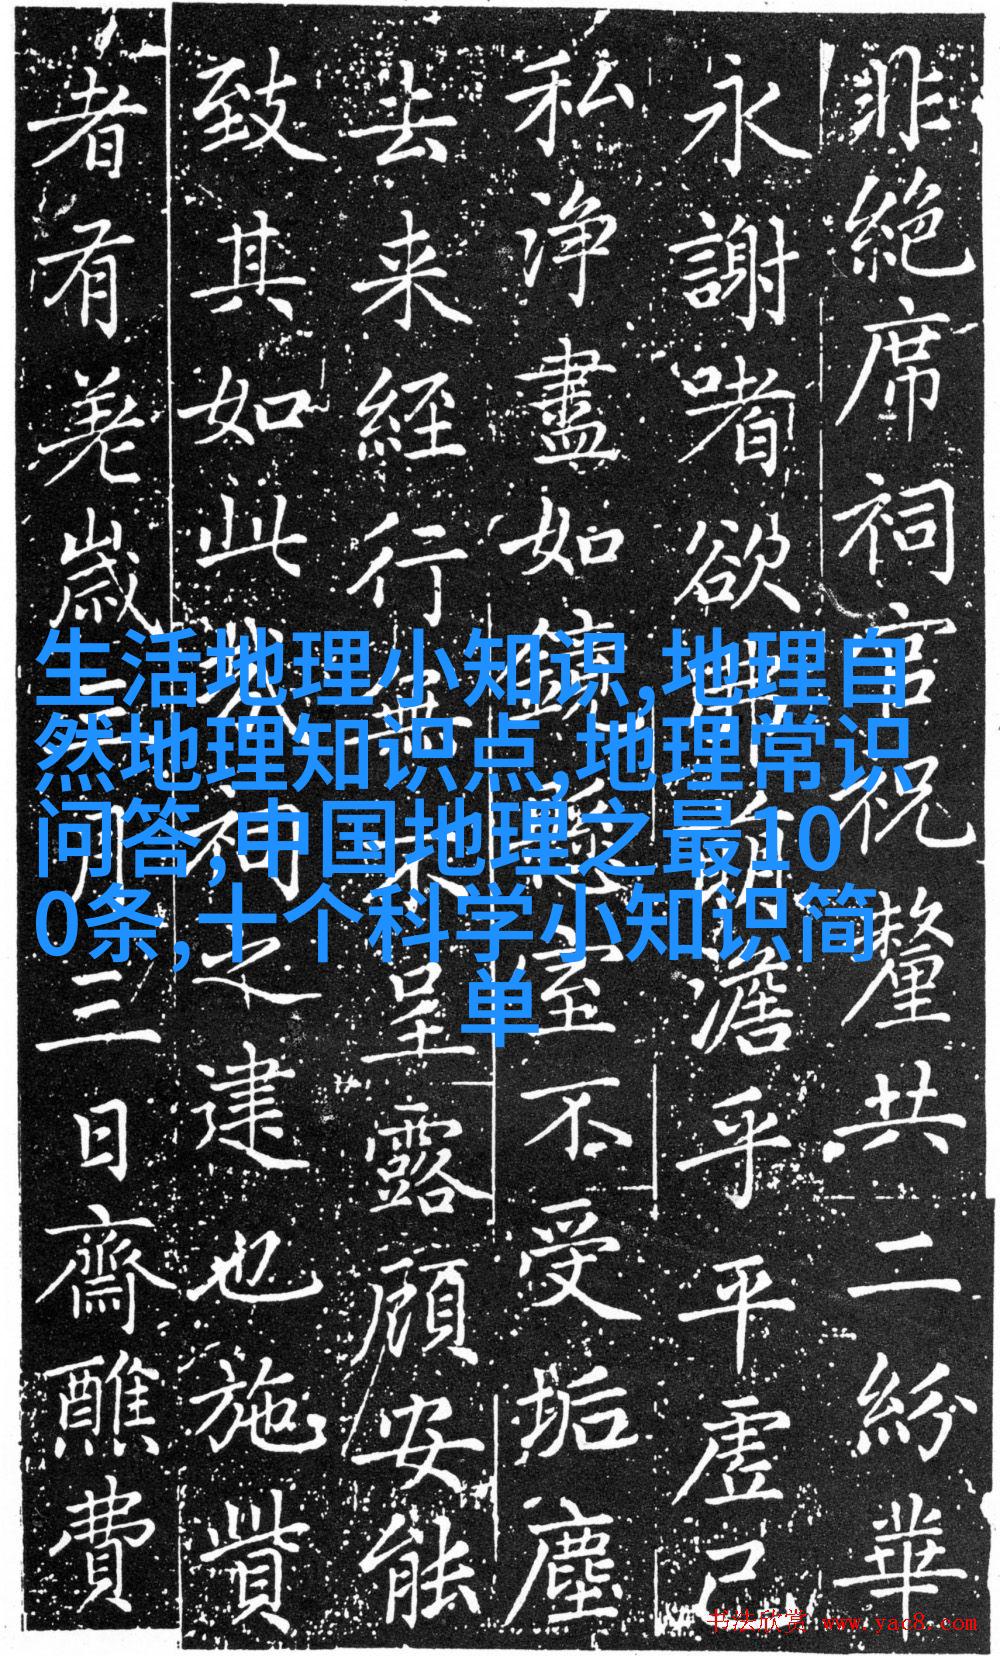 非絶席祠官祝釐共二紛華
永謝嗜欲澹乎平虚己
私浄盡如鏡懸室不受垢塵
去来經行無来呈露顧安能
致其如此哉祠之建也施貲
者有羗歳月三日齋醮費
生活地理小知识,地理自
然地理知识点,地理常识
问答,中国地理之最10
0条,十个科学小知识简
单
书法欣赏 www.yac8.com